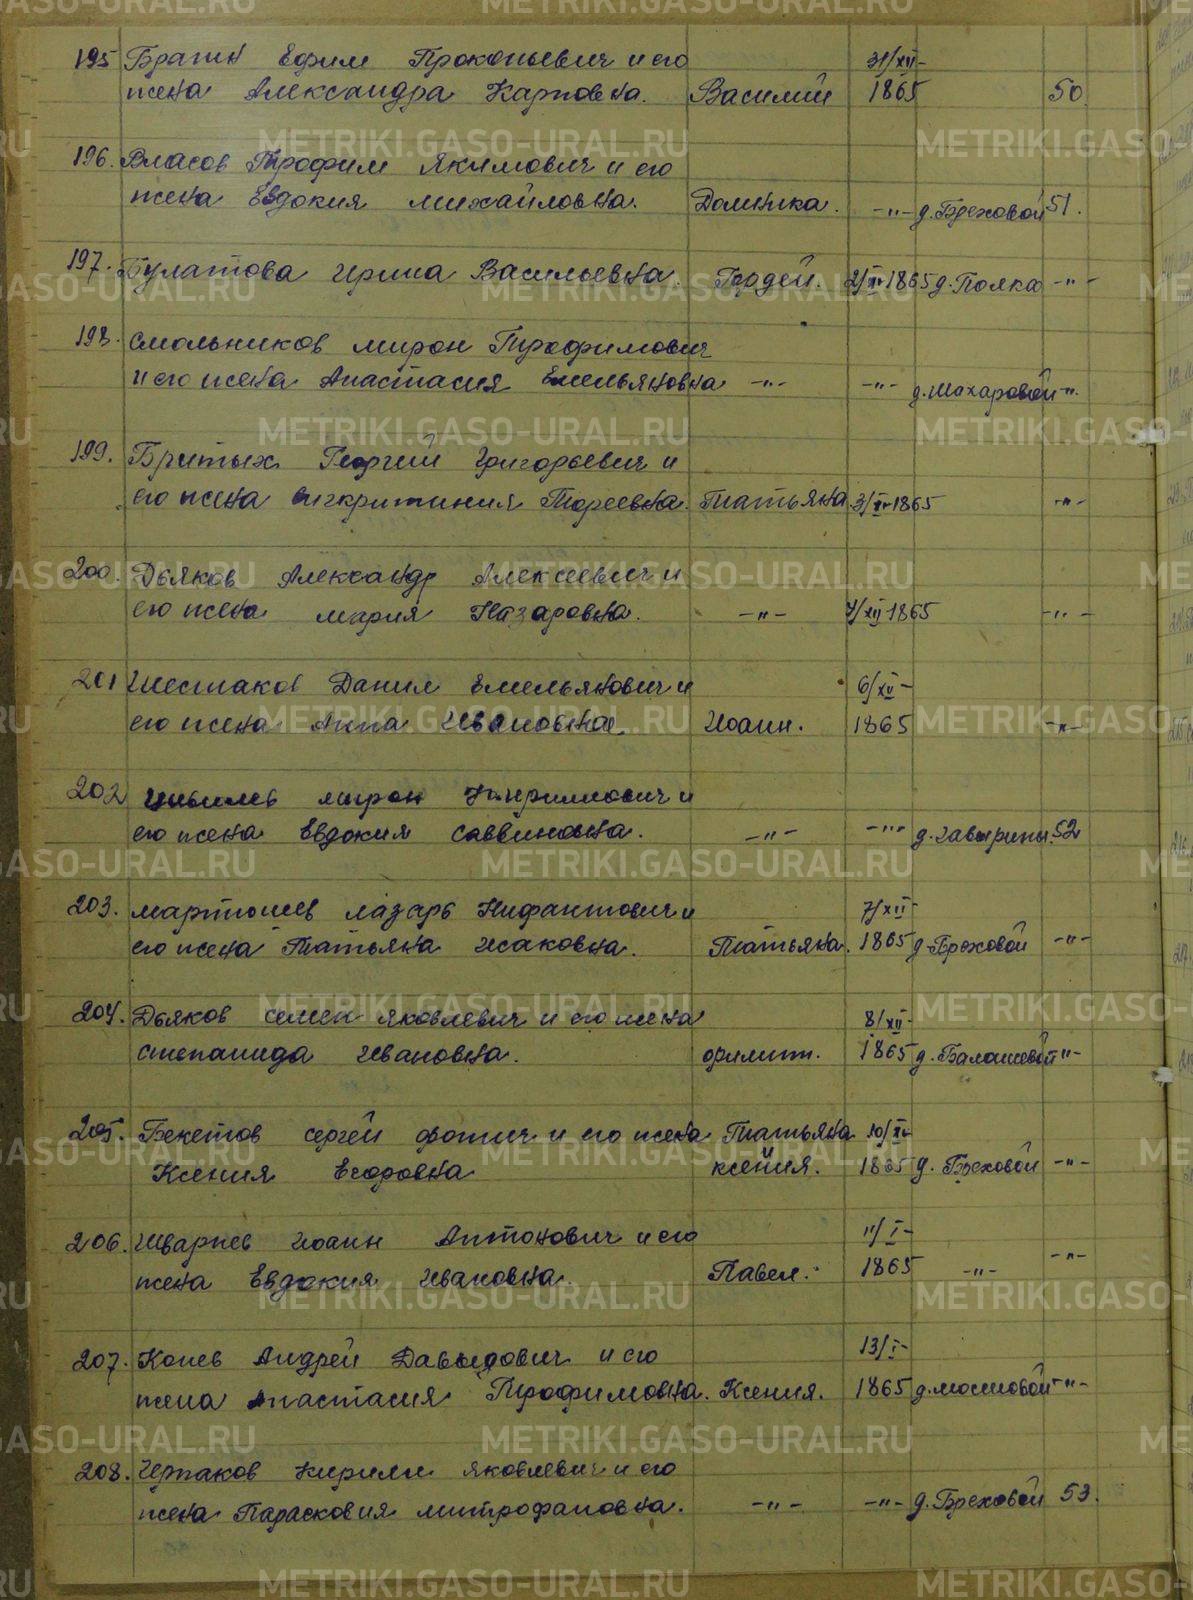 195 Брагин Ефим Прокопьевич и его 31/XII-
жена Александра Карповна. Василий 1865 50
196. Власов Трофим Якимович и его
жена Евдокия Михайловна. Доминика. -"- д. Бреховой 51.
197. Булатова Ирина Васильевна. Гордей. 1865 д. Полка -"-
198. Смольников Мирон Трофимович
и его жена Анастасия Емельяновна -"- -"- д. Махаровой -"-
199. Бритых Георгий Григорьевич и
его жена Татьяна 1865 -"-
200. Дьяков Александр Алексеевич и
его жена Мария Назаровна. -"- 7/XII-1865 -"-
201 Шестаков Данил Емельянович и 6/XII-
его жена Анна Ивановна. Иоанн. 1865 -"-
202 Мирон и
его жена Евдокия Саввиновна. -"- -"- 52
203. Мартюшев Лазарь Нифантович и 7/XII-
его жена Татьяна Исаковна. Татьяна. 1865 д. Бреховой -"-
204. Дьяков Семен Яковлевич и его жена 8/XII-
Степанида Ивановна. 1865 д. Балашевой -"-
205. Бекетов Сергей Фотич и его жена Татьяна
Ксения Егоровна Ксения. 1865 д. Бреховой -"-
206. Иоанн Антонович и его 11/I-
жена Евдокия Ивановна. Павел. 1865 -"- -"-
207. Конев Андрей Давыдович и его 13/I-
жена Анастасия Трофимовна. Ксения. 1865 -"-
208. Черпаков Кирилл Яковлевич и его
жена Парасковия Митрофановна. -"- -"- д. Бреховой 53.
METRIKI.GASO-URAL.RU